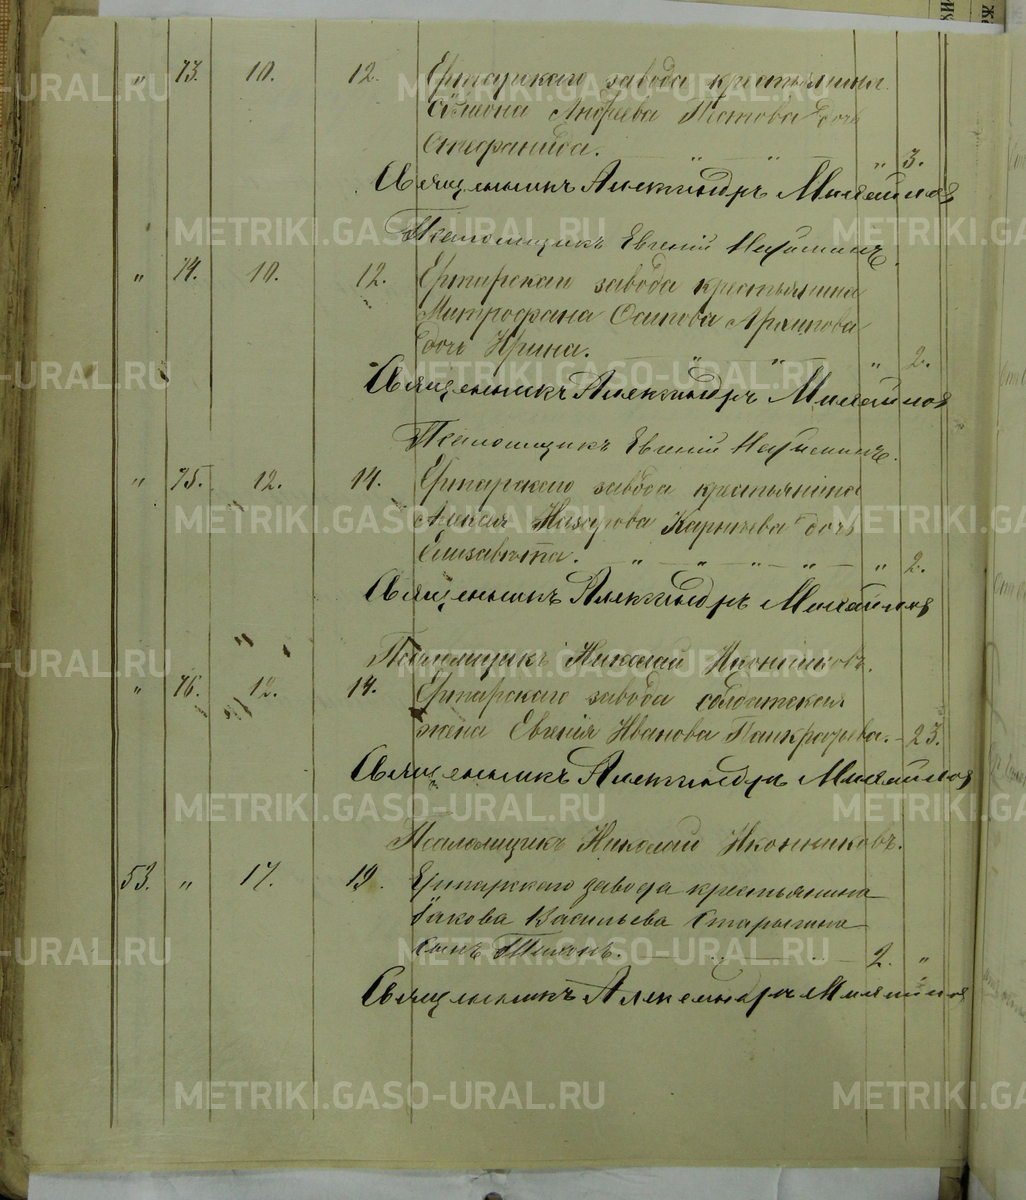 " 73. 10. 12. Ертарскаго завода крестьянина
Симеона Андреева Титова дочь
Стефанида. " " " 3.
Священникъ Александръ Михайлов
Псаломщикъ Евгений
" 74. 10. 12. Ертарскаго завода крестьянина
Митрофана Осипова Архипова
дочь Ирина. " " " 2.
Священникъ Александръ Михайлов
Псаломщикъ Евгений
" 75. 12. 14. Ертарскаго завода крестьянина
Алексея Назарова дочь
Елисавета. " " " " " 2.
Священникъ Александръ Михайлов
Псаломщикъ Николай Иконниковъ.
" 76. 12. 14. Ертарскаго завода солдатская
жена Евгенія Иванова Панкратьева. - 23.
Священникъ Александръ Михайлов
Псаломщикъ Николай Иконниковъ.
53. " 17. 19. Ертарскаго завода крестьянина
Іакова Васильева Старыгина
сынъ 2. "
Священникъ Александръ Михайлов
METRIKI.GASO-URAL.RU